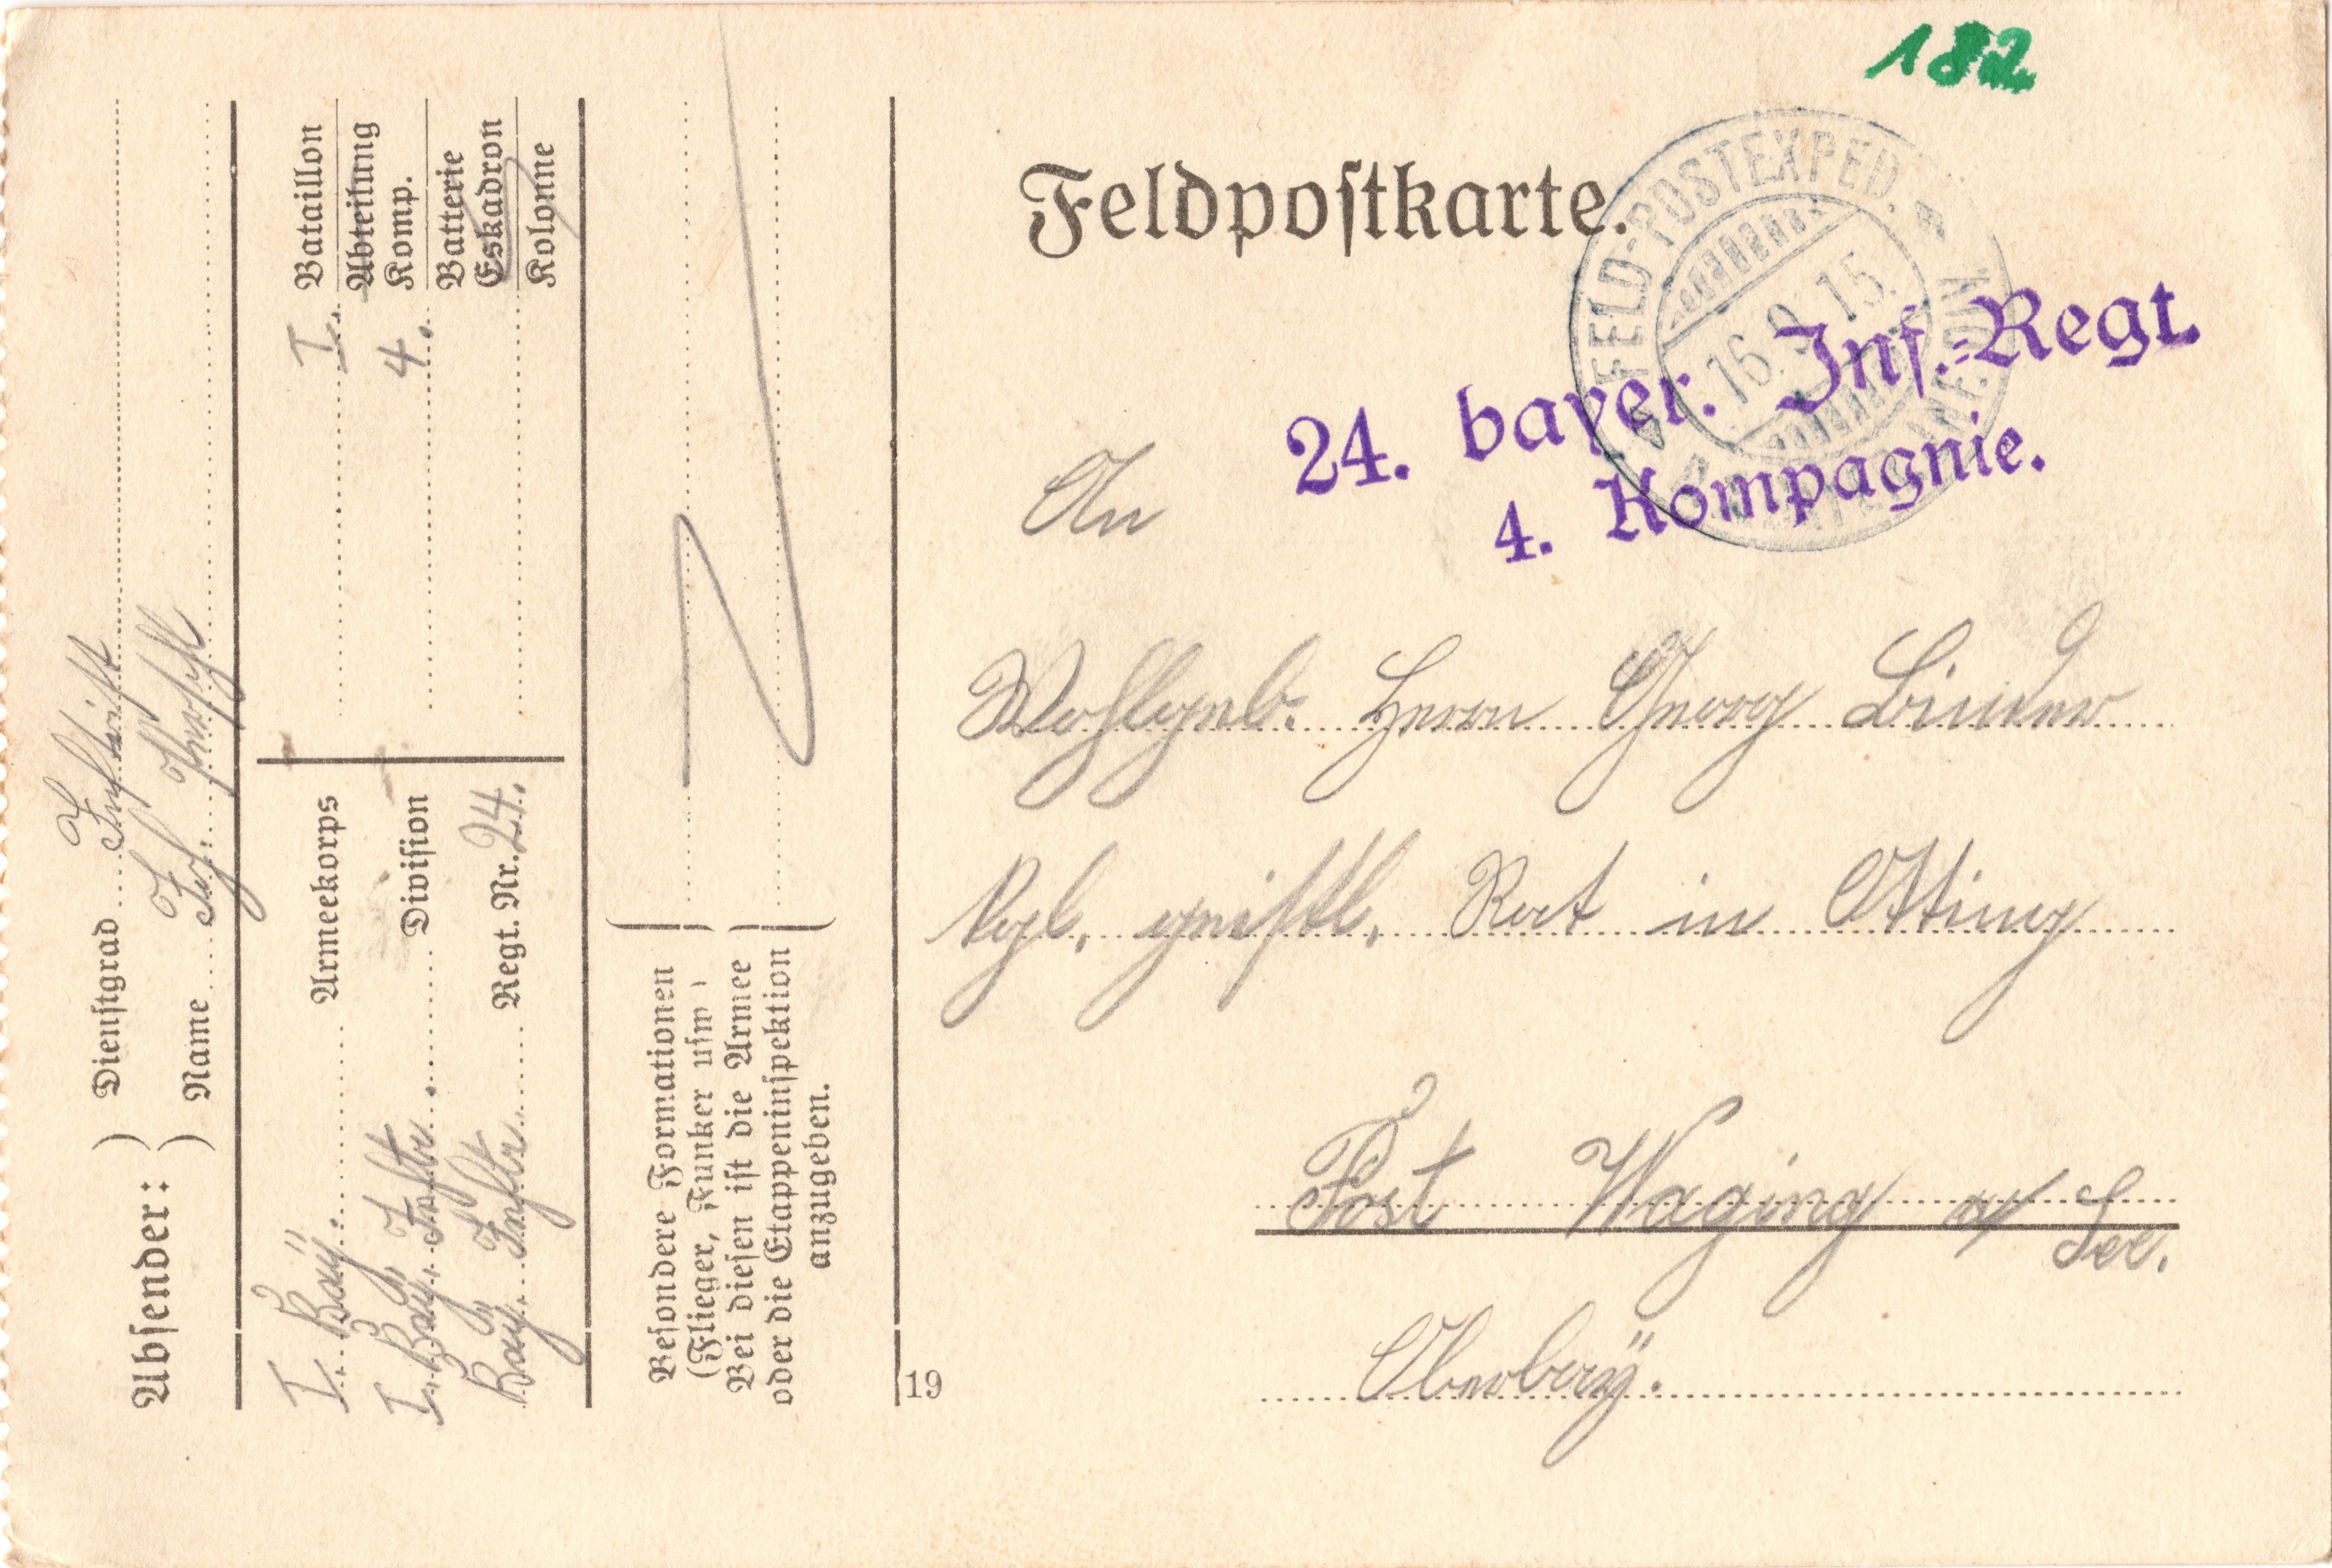 182
Feldpostkarte.
FELD-POSTEXPED.
16. 9. 15.
INF. DIV.
24. bayer. Inf.-Regt.
4. Kompagnie.
An
Wohlgeb. Herrn Georg Binder
kgl. geistl. Rat in Otting
Post Waging a/ See.
Oberbaÿ.
19
Absender:
Dienstgrad Inftrist
Name Jos.
I. Baÿ. Armeekorps
I. Baÿ. Inftr. Division
Baÿ. Inftr. Regt. Nr. 24.
I. Bataillon
Abteilung
4. Komp.
Batterie
Eskadron
Kolonne
Besondere Formationen
(Flieger, Funker usw.)
Bei diesen ist die Armee
oder die Etappeninspektion
anzugeben.